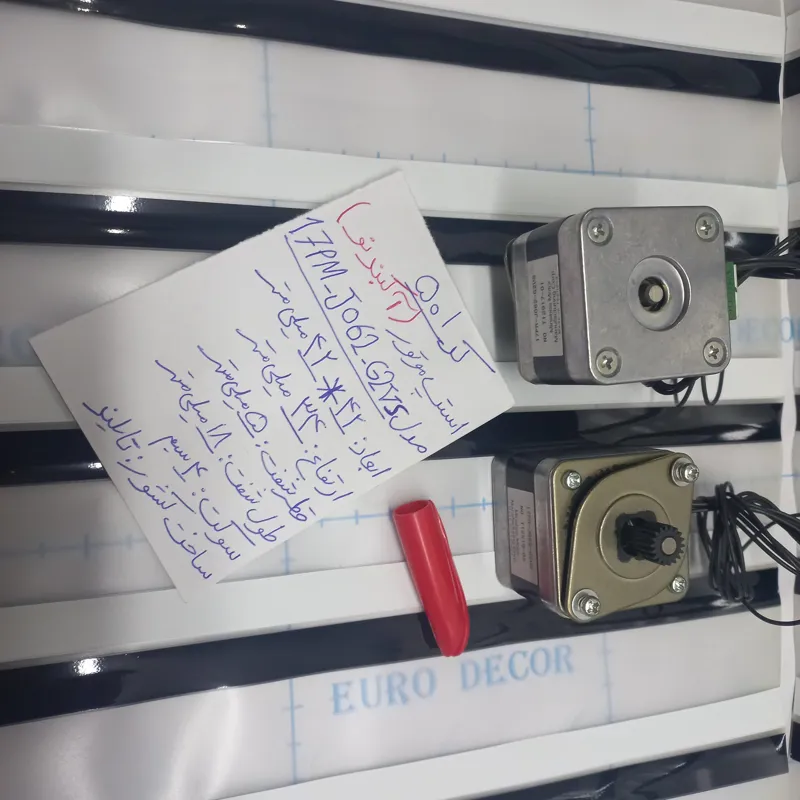 کد ۵۱۵
استپ موتور (آکبند نو)
مدل 17PM-J062-G2VS
ابعاد: ۴۲*۴۲ میلی متر
ارتفاع: ۳۴ میلی متر
قطر شفت: ۵ میلی متر
طول شفت: ۱۸ میلی متر
سوکت: ۴ سیم
ساخت کشور: تایلند
Minebea Motor
Manufacturing Corp.
EURO DECOR